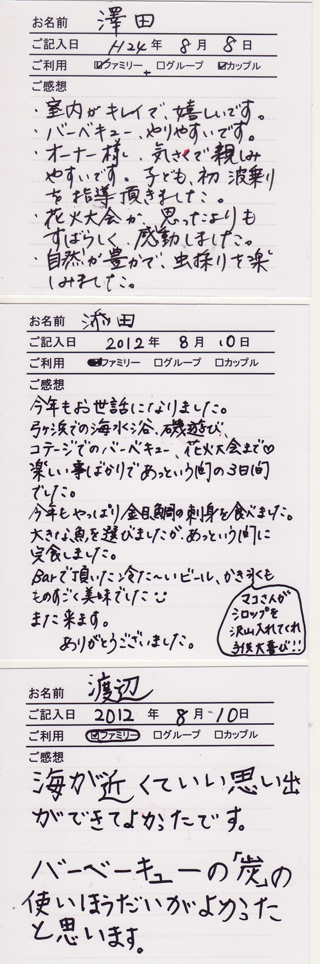 お名前 澤田
ご記入日 H24年 8月 8日
ご利用 ☑ファミリー □グループ ☑カップル
ご感想
・室内がキレイで、嬉しいです。
・バーベキュー、やりやすいです。
・オーナー様し、気さくで親しみ
やすいです。子ども、初 波乗り
を指導頂きました。
・花火大会が、思ったよりも
すばらしく、感動しました。
・自然が豊かで、虫採りを楽
しみました。
お名前 添田
ご記入日 2012年 8月 10日
ご利用 ☑ファミリー □グループ □カップル
ご感想
今年もお世話になりました。
弓ヶ浜での海水浴、磯遊び、
コテージでのバーベキュー、花火大会まで♡
楽しい事ばかりであっという間の3日間
でした。
今年もやっぱり金目鯛の刺身を食べました。
大きな魚を選びましたが、あっという間に
完食しました。
Barで頂いた冷た〜いビール、かき氷も
ものすごく美味でした
また来ます。
ありがとうございました。
マコさんが
シロップを
沢山入れてくれ
子供大喜び!!
お名前 渡辺
ご記入日 2012年 8月 10日
ご利用 ☑ファミリー □グループ □カップル
ご感想
海が近くていい思い出
ができてよかったです。
バーベーキューの「炭」の
使いほうだいがよかった
と思います。